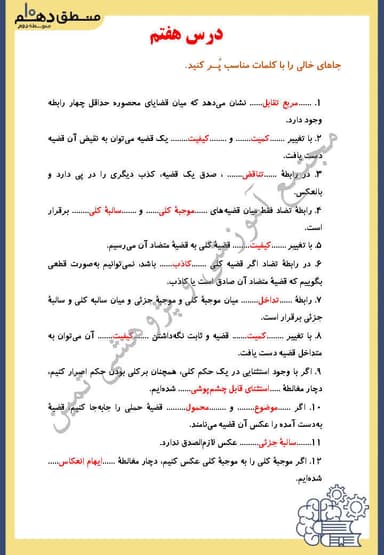 منطق دهم
متوسطه دوم
درس هفتم
جاهای خالی را با کلمات مناسب پُـر کنید.
۱. ......مربع تقابل...... نشان می‌دهد که میان قضایای محصوره حداقل چهار رابطه
وجود دارد.
۲. با تغییر .......کمیت........ و ........کیفیت......... یک قضیه می‌توان به نقیض آن قضیه
دست یافت.
۳. در رابطهٔ ......تناقض....... ، صدق یک قضیه، کذب دیگری را در پی دارد و
بالعکس.
۴. رابطهٔ تضاد فقط میان قضیه‌های ......موجبهٔ کلی...... و ......سالبهٔ کلی....... برقرار
است.
۵. با تغییر .......کیفیت........ قضیهٔ کلی به قضیهٔ متضاد آن می‌رسیم.
۶. در رابطهٔ تضاد اگر قضیه کلی .......کاذب...... باشد، نمی‌توانیم به‌صورت قطعی
بگوییم که قضیهٔ متضاد آن صادق است یا کاذب.
۷. رابطهٔ .......تداخل........ میان موجبهٔ کلی و موجبهٔ جزئی و میان سالبه کلی و سالبهٔ
جزئی برقرار است.
۸. با تغییر ........کمیت....... قضیه و ثابت نگه‌داشتن .......کیفیت........ آن می‌توان به
متداخل قضیه دست یافت.
۹. اگر با وجود استثنایی در یک حکم کلی، همچنان برکلی بودن حکم اصرار کنیم،
دچار مغالطهٔ .....استثنای قابل چشم‌پوشی...... شده‌ایم.
۱۰. اگر ......موضوع........ و ........محمول......... قضیهٔ حملی را جابه‌جا کنیم، قضیهٔ
به‌دست آمده را عکس آن قضیه می‌نامند.
۱۱.......سالبهٔ جزئی......... عکس لازم‌الصدق ندارد.
۱۲. اگر موجبهٔ کلی را به موجبهٔ کلی عکس کنیم، دچار مغالطهٔ ......ایهام انعکاس.....
شده‌ایم.
مجتمع آموزشی و پژوهشی تمیز